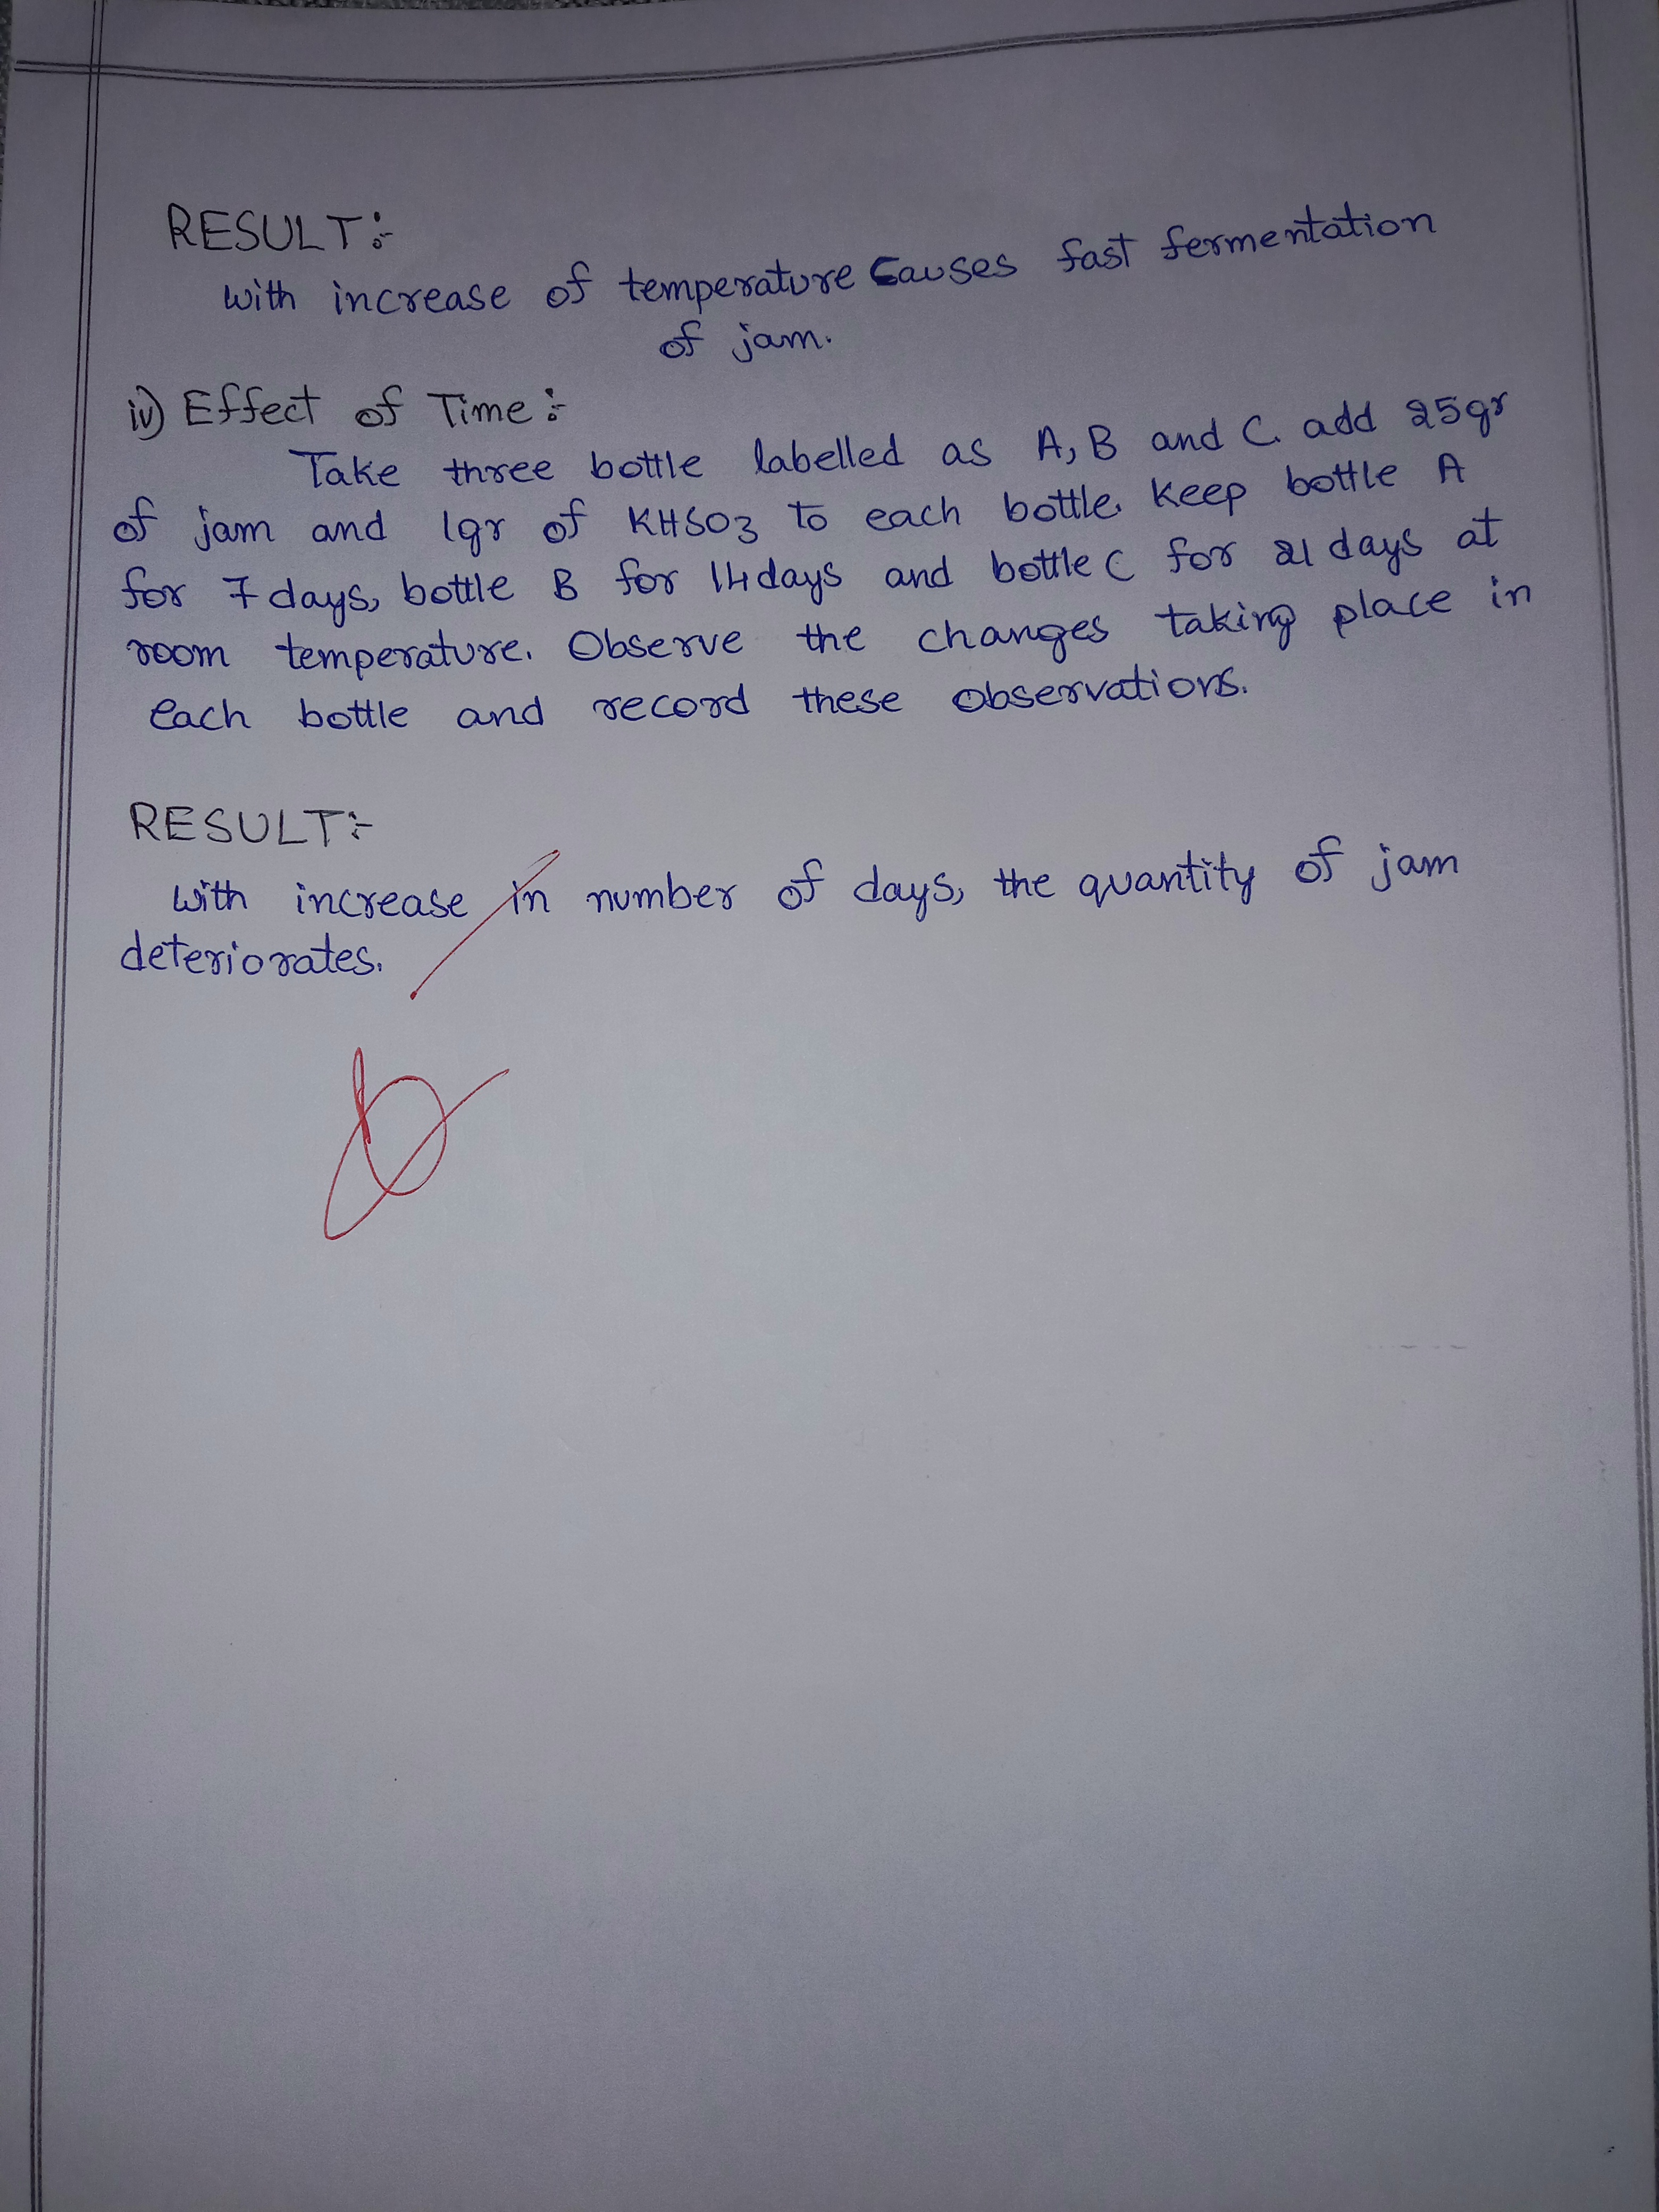 RESULT:-
with increase of temperature causes fast fermentation
of jam.
iv) Effect of Time:-
Take three bottle labelled as A, B and C. add 25gr
of jam and 1gr of KHSO3 to each bottle. Keep bottle A
for 7 days, bottle B for 14 days and bottle C for 21 days at
room temperature. Observe the changes taking place in
each bottle and record these observations.
RESULT:-
with increase in number of days, the quantity of jam
deteriorates.